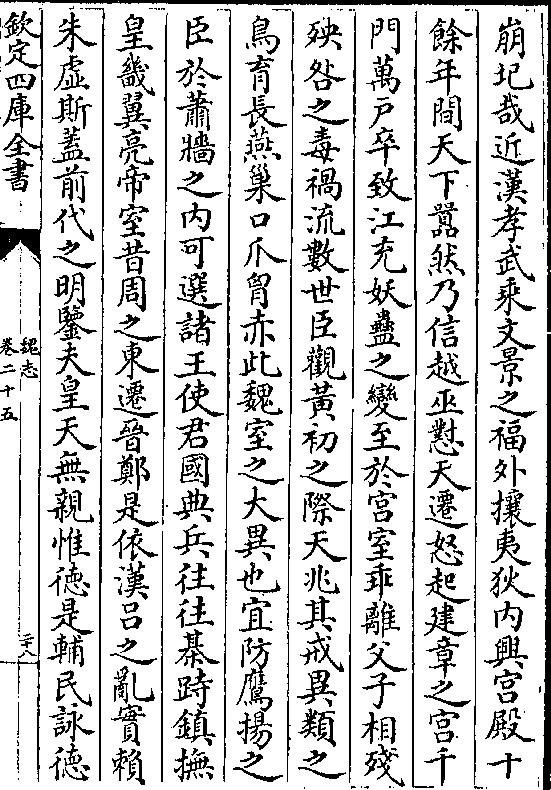 崩圮哉近漢孝武乘文景之福外攘夷狄内興宫殿十
餘年間天下囂然乃信越巫懟天遷怒起建章之宫千
門萬户卒致江充妖蠱之變至於宫室乖離父子相殘
殃咎之毒禍流數世臣觀黄初之際天兆其戒異類之
鳥育長燕巢口爪胷赤此魏室之大異也宜防鷹揚之
臣於蕭牆之内可選諸王使君國典兵往往棊跱鎮撫
皇畿翼亮帝室昔周之東遷晉鄭是依漢吕之亂實賴
朱虚斯蓋前代之明鑒夫皇天無親惟徳是輔民詠徳
欽定四庫全書
魏志
卷二十五
二十八